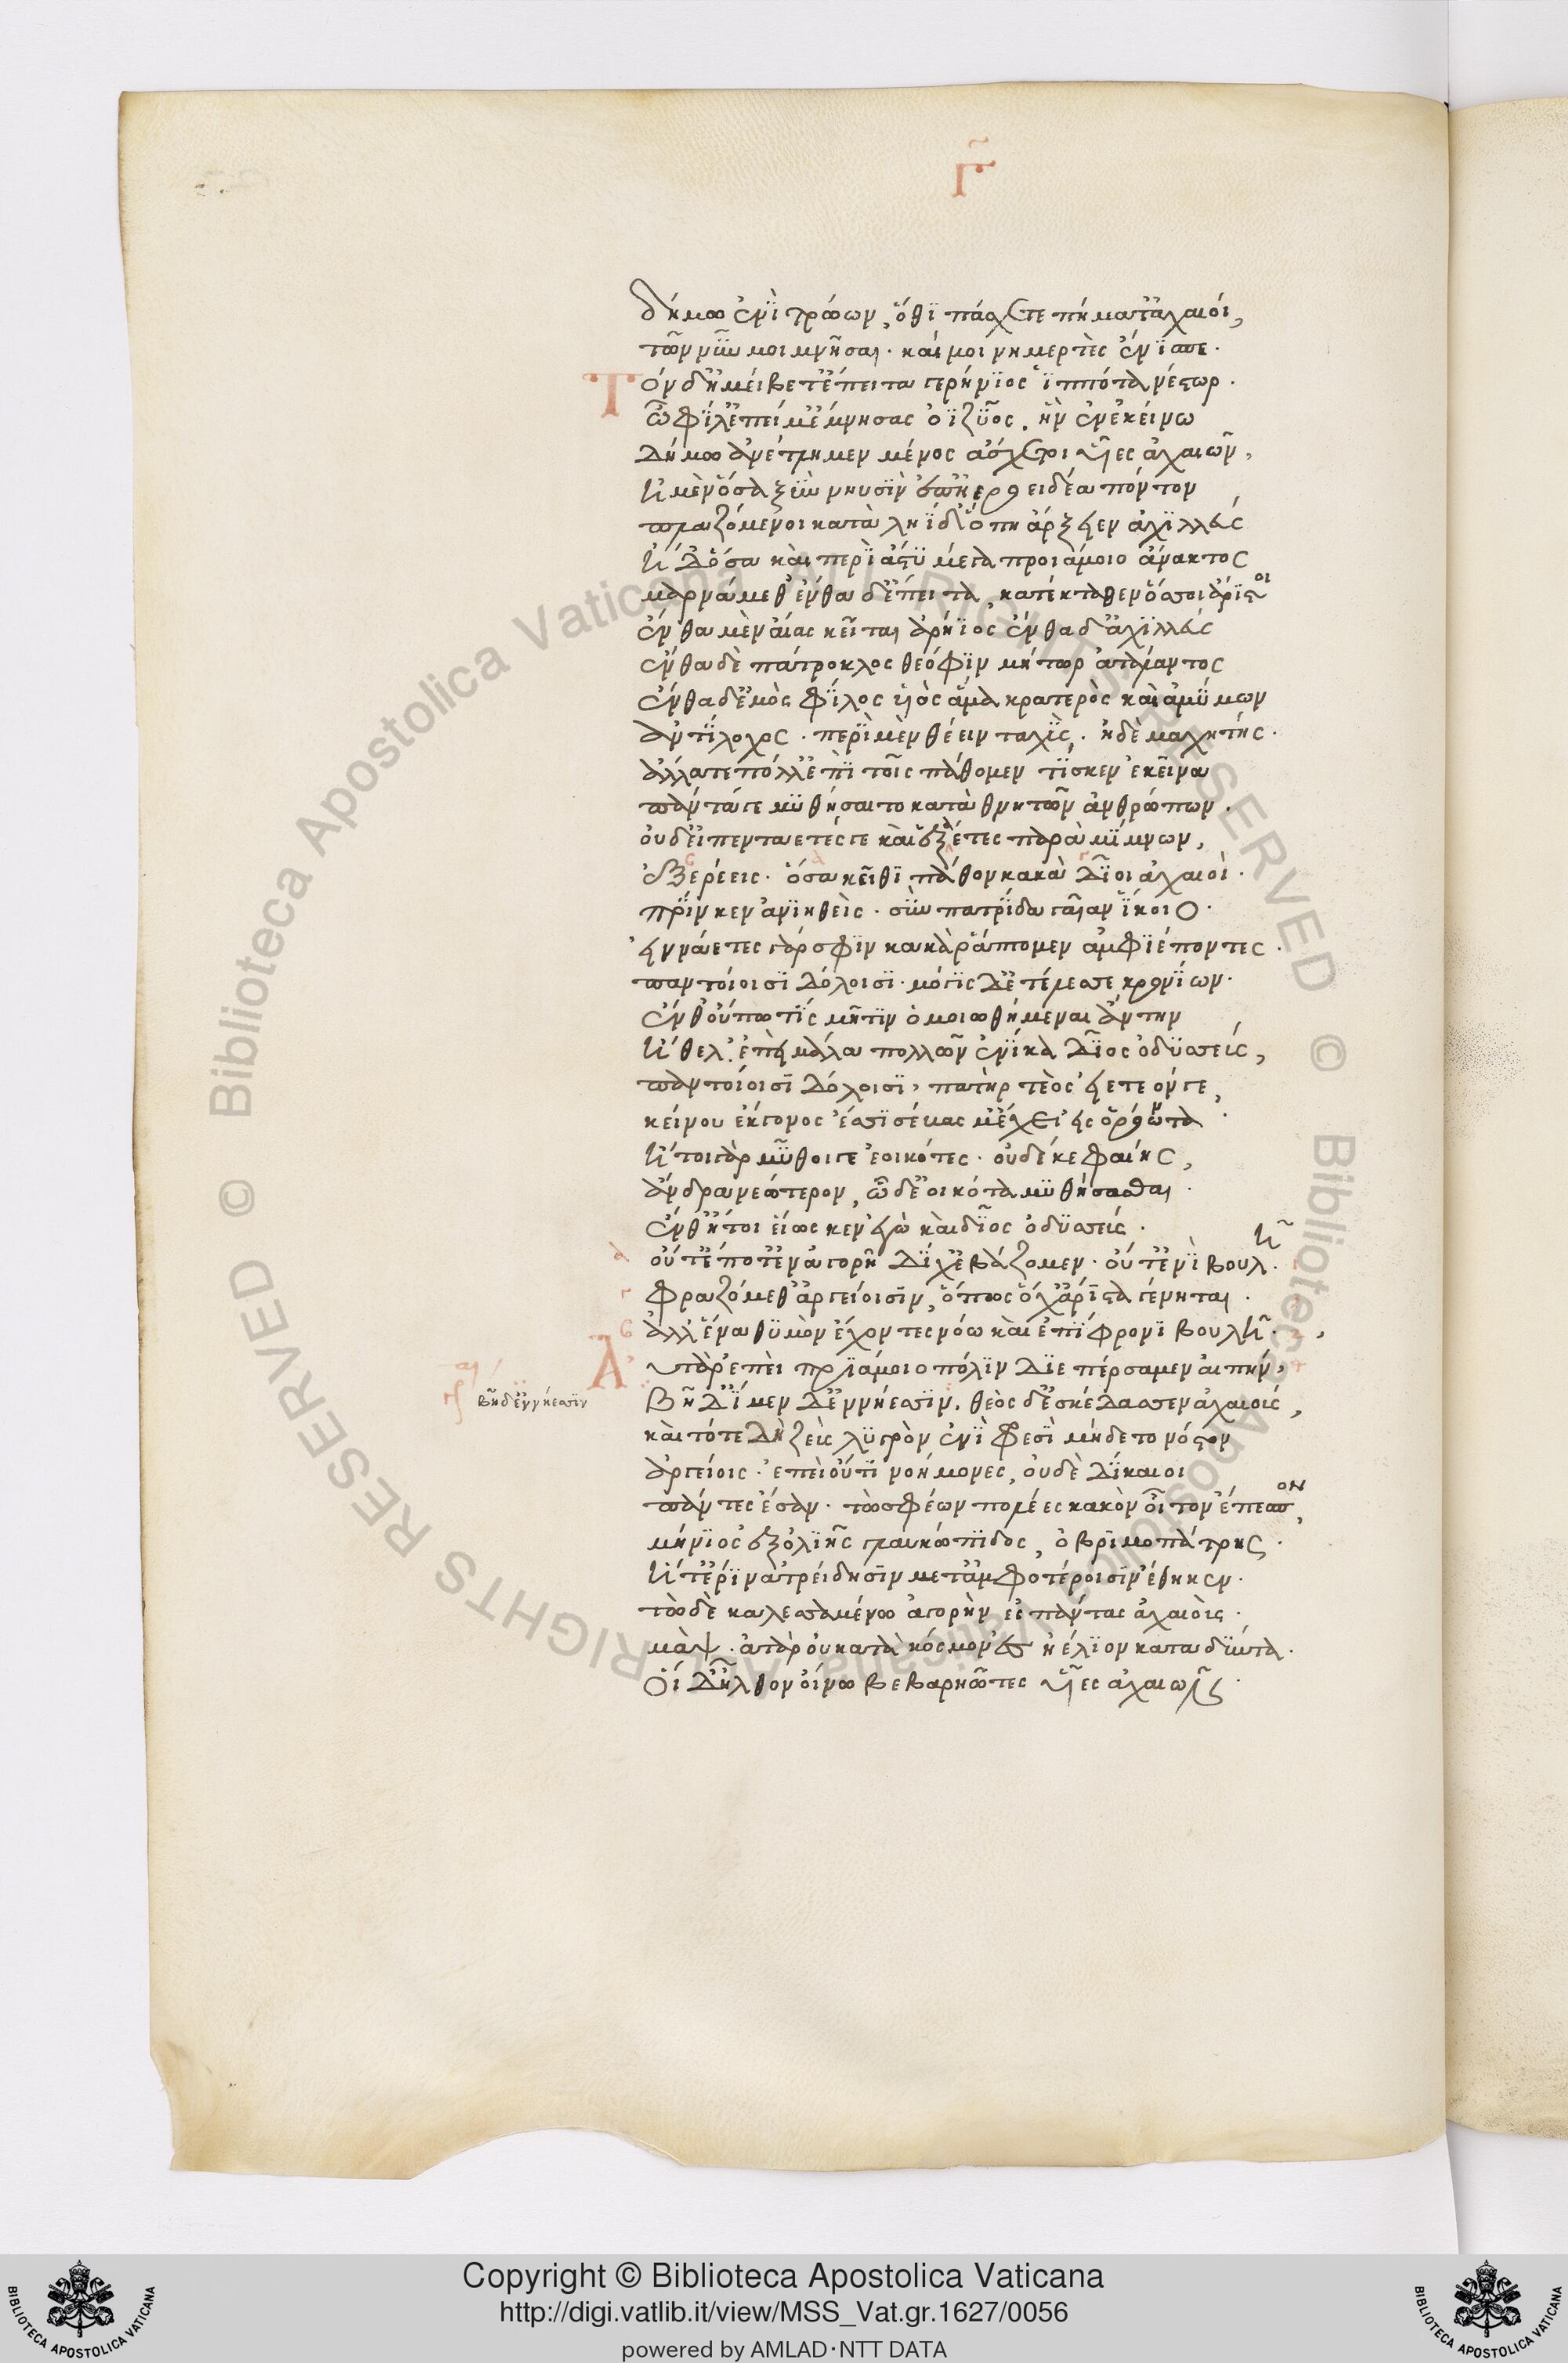 Γ
δήμω ἐνὶ τρώων, ὅθι πάσχετε πήματ' ἀχαιοί,
τῶν νῦν μοι μνῆσαι· καί μοι νημερτὲς ἐνίσπε·
Τὸν δ' ἠμείβετ' ἔπειτα γερήνιος ἱππότα νέστωρ·
ὦ φίλ' ἐπεί μ' ἔμνησας ὀϊζύος, ἣν ἐν ἐκείνω
δήμω ἀνέτλημεν μένος ἄσχετοι υἷες ἀχαιῶν,
ἠμὲν ὅσα ξὺν νηυσὶν ἐπ' ἠεροειδέα πόντον
πλαζόμενοι κατὰ ληΐδ' ὅπη ἄρξειεν ἀχιλλεύς
ἠδ' ὅσα καὶ περὶ ἄστυ μέγα πριάμοιο ἄνακτος
μαρνάμεθ' ἔνθα δ' ἔπειτα κατέκταθεν ὅσσοι ἄριστοι
ἔνθα μὲν αἴας κεῖται ἀρήϊος ἔνθα δ' ἀχιλλεύς
ἔνθα δὲ πάτροκλος θεόφιν μήστωρ ἀτάλαντος
ἔνθα δ' ἐμὸς φίλος υἱὸς ἅμα κρατερὸς καὶ ἀμύμων
ἀντίλοχος· περὶ μὲν θέειν ταχὺς, ἠδὲ μαχητής·
ἄλλα τε πόλλ' ἐπὶ τοῖς πάθομεν τίς κεν ἐκεῖνα
πάντά γε μυθήσαιτο κατὰ θνητῶν ἀνθρώπων·
οὐδ' εἰ πεντάετές γε καὶ ἑξάετες παρὰ μίμνων,
ἐξερέεις· ὅσα κεῖθι πάθον κακὰ δῖοι ἀχαιοὶ·
πρίν κεν ἀνιηθεὶς· σὴν πατρίδα γαῖαν ἵκοιο·
εἰνάετες γάρ σφιν κακὰ ῥάπτομεν ἀμφιέποντες·
παντοίοισι δόλοισι· μόγις δ' ἐτέλεσσε κρονίων·
ἔνθ' οὔπω τίς μῆτιν ὁμοιωθήμεναι ἄντην
ἤθελ' ἐπεὶ μάλα πολλὸν ἐνίκα δῖος ὀδυσσεύς,
παντοίοισι δόλοισι, πατὴρ τεὸς εἰ ἐτεόν γε,
κείνου ἔκγονος ἐσσί σέβας μ' ἔχει εἰσορόωντα·
ἤτοι γὰρ μῦθοί γε ἐοικότες· οὐδέ κε φαίης,
ἄνδρα νεώτερον, ὧδ' ἐοικότα μυθήσασθαι·
ἔνθ' ἤτοι εἵως κεν ἐγὼ καὶ δῖος ὀδυσσεύς·
οὔτέ ποτ' ἐν ἀγορῆ δίχ' ἐβάζομεν· οὔτ' ἐνὶ βουλῆ·
φραζόμεθ' ἀργείοισιν, ὅπως ὄχ' ἄριστα γένηται·
ἀλλ' ἕνα θυμὸν ἔχοντες νόω καὶ ἐπίφρονι βουλῆ·
Αὐτὰρ ἐπεὶ πριάμοιο πόλιν διεπέρσαμεν αἰπήν,
βῆν δ' ἐν νήεσσιν
βῆ δ' ἴμεν δ' ἐν νήεσσιν. θεὸς δ' ἐσκέδασσεν ἀχαιούς,
καὶ τότε δὴ ζεὺς λυγρὸν ἐνὶ φρεσὶ μήδετο νόστον
ἀργείοις· ἐπεὶ οὔτι νοήμονες, οὐδὲ δίκαιοι
πάντες ἔσαν· τῶ σφέων πολέες κακὸν οἶτον ἐπέσπον,
μήνιος ἐξ ὀλοῆς γλαυκώπιδος, ὀβριμοπάτρης·
ἥτ' ἔριν ἀτρείδησιν μετ' ἀμφοτέροισιν ἔθηκεν·
τὼ δὲ καλεσσαμένω ἀγορὴν εἰς πάντας ἀχαιοὺς·
μὰψ· ἀτὰρ οὐ κατὰ κόσμον ἐς ἠέλιον καταδύντα·
οἱ δ' ἦλθον οἴνω βεβαρηῶτες υἷες ἀχαιῶν·
Copyright © Biblioteca Apostolica Vaticana
http://digi.vatlib.it/view/MSS_Vat.gr.1627/0056
powered by AMLAD·NTT DATA